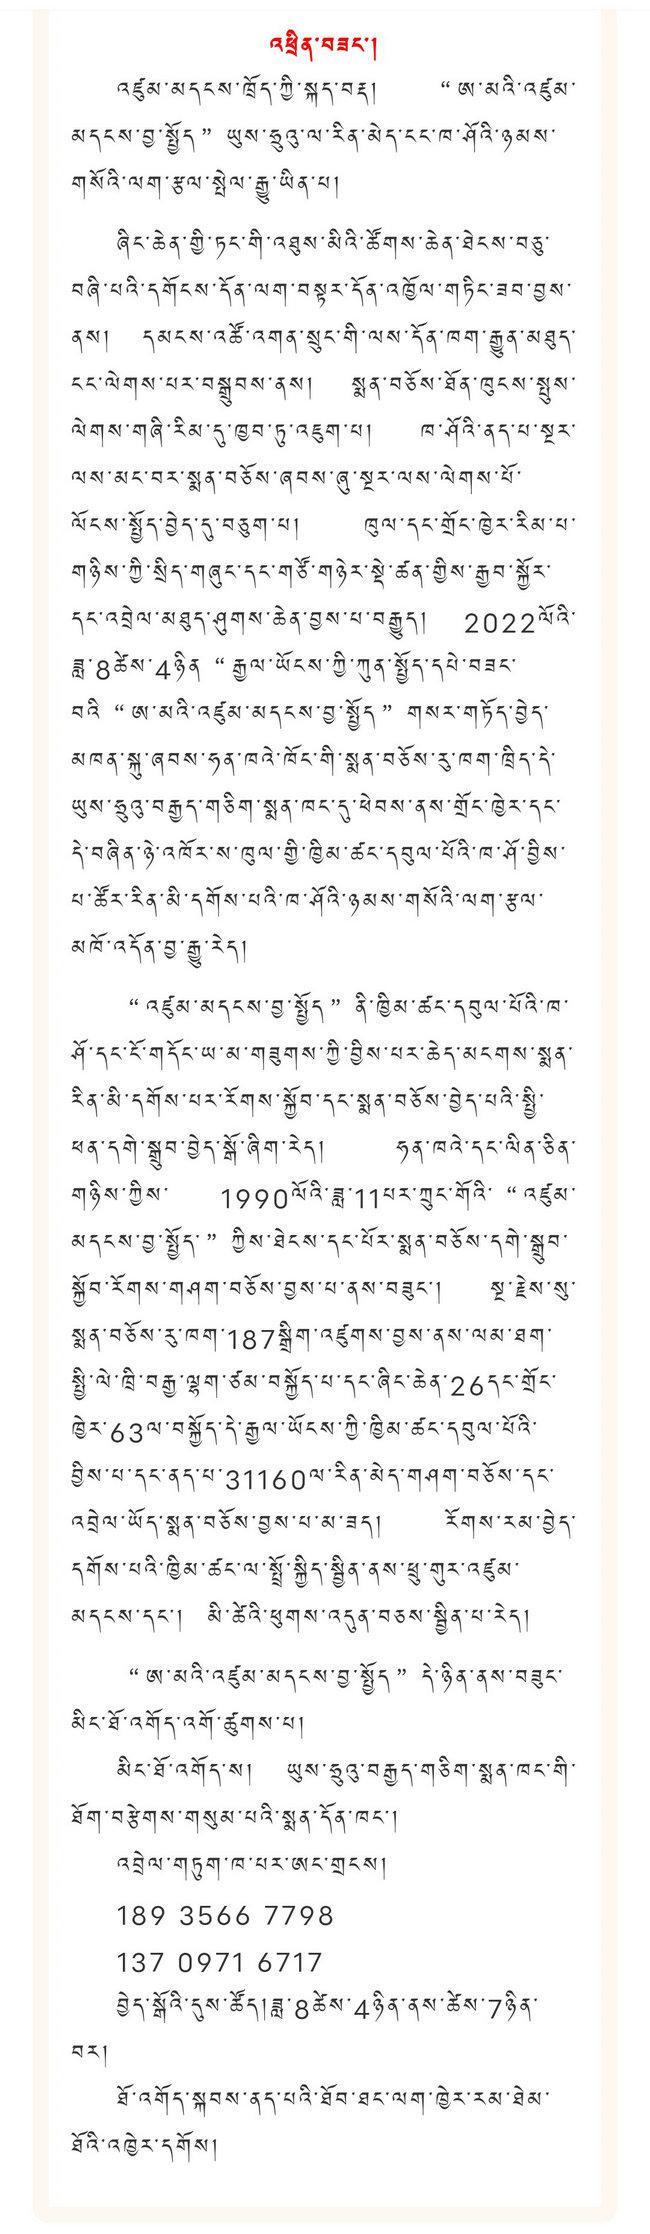 འཕྲིན་བཟང་།
འཛུམ་མདངས་ཁྲོད་ཀྱི་སྐད་བརྡ། “ཨ་མའི་འཛུམ་
མདངས་བྱ་སྤྱོད” ཡུས་ཧྲུའུ་ལ་རིན་མེད་ངང་ཁ་ཤོའི་ཉམས་
གསོའི་ལག་རྩལ་སྤེལ་རྒྱུ་ཡིན་པ།
ཞིང་ཆེན་གྱི་ཏང་གི་འཐུས་མིའི་ཚོགས་ཆེན་ཐེངས་བཅུ་
བཞི་པའི་དགོངས་དོན་ལག་བསྟར་དོན་འཁྱོལ་གཏིང་ཟབ་བྱས་
ནས། དམངས་འཚོ་འགན་སྲུང་གི་ལས་དོན་ཁག་རྒྱུན་མཐུད་
ངང་ལེགས་པར་བསྒྲུབས་ནས། སྨན་བཅོས་ཐོན་ཁུངས་སྤུས་
ལེགས་གཞི་རིམ་དུ་ཁྱབ་ཏུ་འཇུག་པ། ཁ་ཤོའི་ནད་པ་སྔར་
ལས་མང་བར་སྨན་བཅོས་ཞབས་ཞུ་སྔར་ལས་ལེགས་པོ་
ལོངས་སྤྱོད་བྱེད་དུ་བཅུག་པ། ཁུལ་དང་གྲོང་ཁྱེར་རིམ་པ་
གཉིས་ཀྱི་སྲིད་གཞུང་དང་གཙོ་གཉེར་སྡེ་ཚན་གྱིས་རྒྱབ་སྐྱོར་
དང་འབྲེལ་མཐུད་ཤུགས་ཆེན་བྱས་པ་བརྒྱུད། 2022ལོའི་
ཟླ་8ཚེས་4ཉིན “རྒྱལ་ཡོངས་ཀྱི་ཀུན་སྤྱོད་དཔེ་བཟང་
བའི “ཨ་མའི་འཛུམ་མདངས་བྱ་སྤྱོད” གསར་གཏོད་བྱེད་
མཁན་སྐུ་ཞབས་ཧན་ཁའེ་ཁོང་གི་སྨན་བཅོས་རུ་ཁག་ཁྲིད་དེ་
ཡུས་ཧྲུའུ་བརྒྱད་གཅིག་སྨན་ཁང་དུ་ཕེབས་ནས་གྲོང་ཁྱེར་དང་
དེ་བཞིན་ཉེ་འཁོར་ས་ཁུལ་གྱི་ཁྱིམ་ཚང་དབུལ་པོའི་ཁ་ཤོ་བྱིས་
པ་ཚོར་རིན་མི་དགོས་པའི་ཁ་ཤོའི་ཉམས་གསོའི་ལག་རྩལ་
མཁོ་འདོན་བྱ་རྒྱུ་རེད།
“འཛུམ་མདངས་བྱ་སྤྱོད” ནི་ཁྱིམ་ཚང་དབུལ་པོའི་ཁ་
ཤོ་དང་ངོ་གདོང་ཡ་མ་གཟུགས་ཀྱི་བྱིས་པར་ཆེད་མངགས་སྨན་
རིན་མི་དགོས་པར་རོགས་སྐྱོབ་དང་སྨན་བཅོས་བྱེད་པའི་སྤྱི་
ཕན་དགེ་སྒྲུབ་བྱེད་སྒོ་ཞིག་རེད། ཧན་ཁའེ་དང་ལིན་ཅིན་
གཉིས་ཀྱིས་ 1990ལོའི་ཟླ་11པར་ཀྲུང་གོའི་ “འཛུམ་
མདངས་བྱ་སྤྱོད་” ཀྱིས་ཐེངས་དང་པོར་སྨན་བཅོས་དགེ་སྒྲུབ་
སྐྱོབ་རོགས་གཤག་བཅོས་བྱས་པ་ནས་བཟུང་། སྔ་རྗེས་སུ་
སྨན་བཅོས་རུ་ཁག་187སྒྲིག་འཛུགས་བྱས་ནས་ལམ་ཐག་
སྤྱི་ལེ་ཁྲི་བརྒྱ་ལྷག་ཙམ་བསྐྱོད་པ་དང་ཞིང་ཆེན་26དང་གྲོང་
ཁྱེར་63ལ་བསྐྱོད་དེ་རྒྱལ་ཡོངས་ཀྱི་ཁྱིམ་ཚང་དབུལ་པོའི་
བྱིས་པ་དང་ནད་པ་31160ལ་རིན་མེད་གཤག་བཅོས་དང་
འབྲེལ་ཡོད་སྨན་བཅོས་བྱས་པ་མ་ཟད། རོགས་རམ་བྱེད་
དགོས་པའི་ཁྱིམ་ཚང་ལ་སྤྲོ་སྐྱིད་སྦྱིན་ནས་ཕྲུ་གུར་འཛུམ་
མདངས་དང་། མི་ཚེའི་ཕུགས་འདུན་བཅས་སྦྱིན་པ་རེད།
“ཨ་མའི་འཛུམ་མདངས་བྱ་སྤྱོད” དེ་ཉིན་ནས་བཟུང་
མིང་ཐོ་འགོད་འགོ་ཚུགས་པ།
མིང་ཐོ་འགོད་ས། ཡུས་ཧྲུའུ་བརྒྱད་གཅིག་སྨན་ཁང་གི་
ཐོག་བརྩེགས་གསུམ་པའི་སྨན་དོན་ཁང་།
འབྲེལ་གཏུག་ཁ་པར་ཨང་གྲངས།
189 3566 7798
137 0971 6717
བྱེད་སྒོའི་དུས་ཚོད།ཟླ་8ཚེས་4ཉིན་ནས་ཚེས་7ཉིན་
བར།
ཐོ་འགོད་སྐབས་ནད་པའི་ཐོབ་ཐང་ལག་ཁྱེར་རམ་ཐེམ་
ཐོའི་འཁྱེར་དགོས།